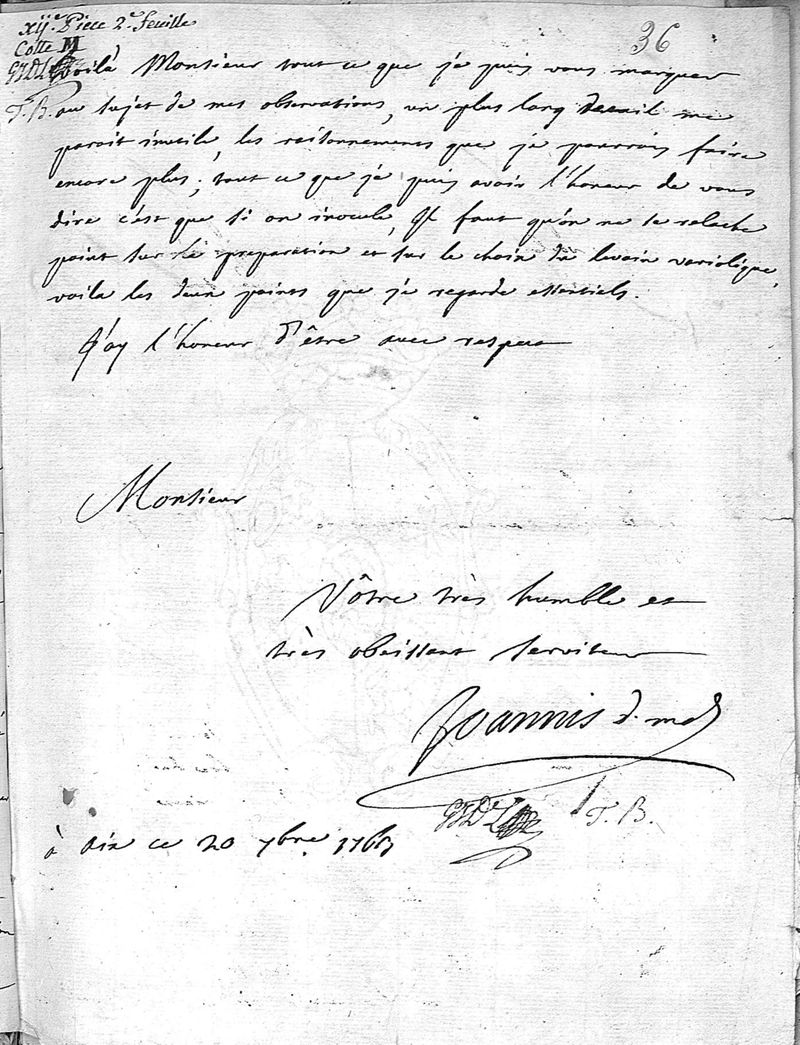 xije Piece 2e feuille
36
Cotte M
voilà Monsieur tout ce que je puis vous marquer
T. B. au sujet de mes observations, un plus long detail me
paroit inutile, les raisonnements que je pourrois faire
encore plus; tout ce que je puis avoir l'honeur de vous
dire c'est que si on inocule, il faut qu'on ne se relache
point sur la preparation et sur le choix du levain variolique,
voila les deux points que je regarde essentiels.
J'ay l'honeur d'être avec respect
Monsieur
Vôtre très humble et
très obeissant serviteur
Joannis d. m.
T. B.
à aix ce 20 7bre 1763